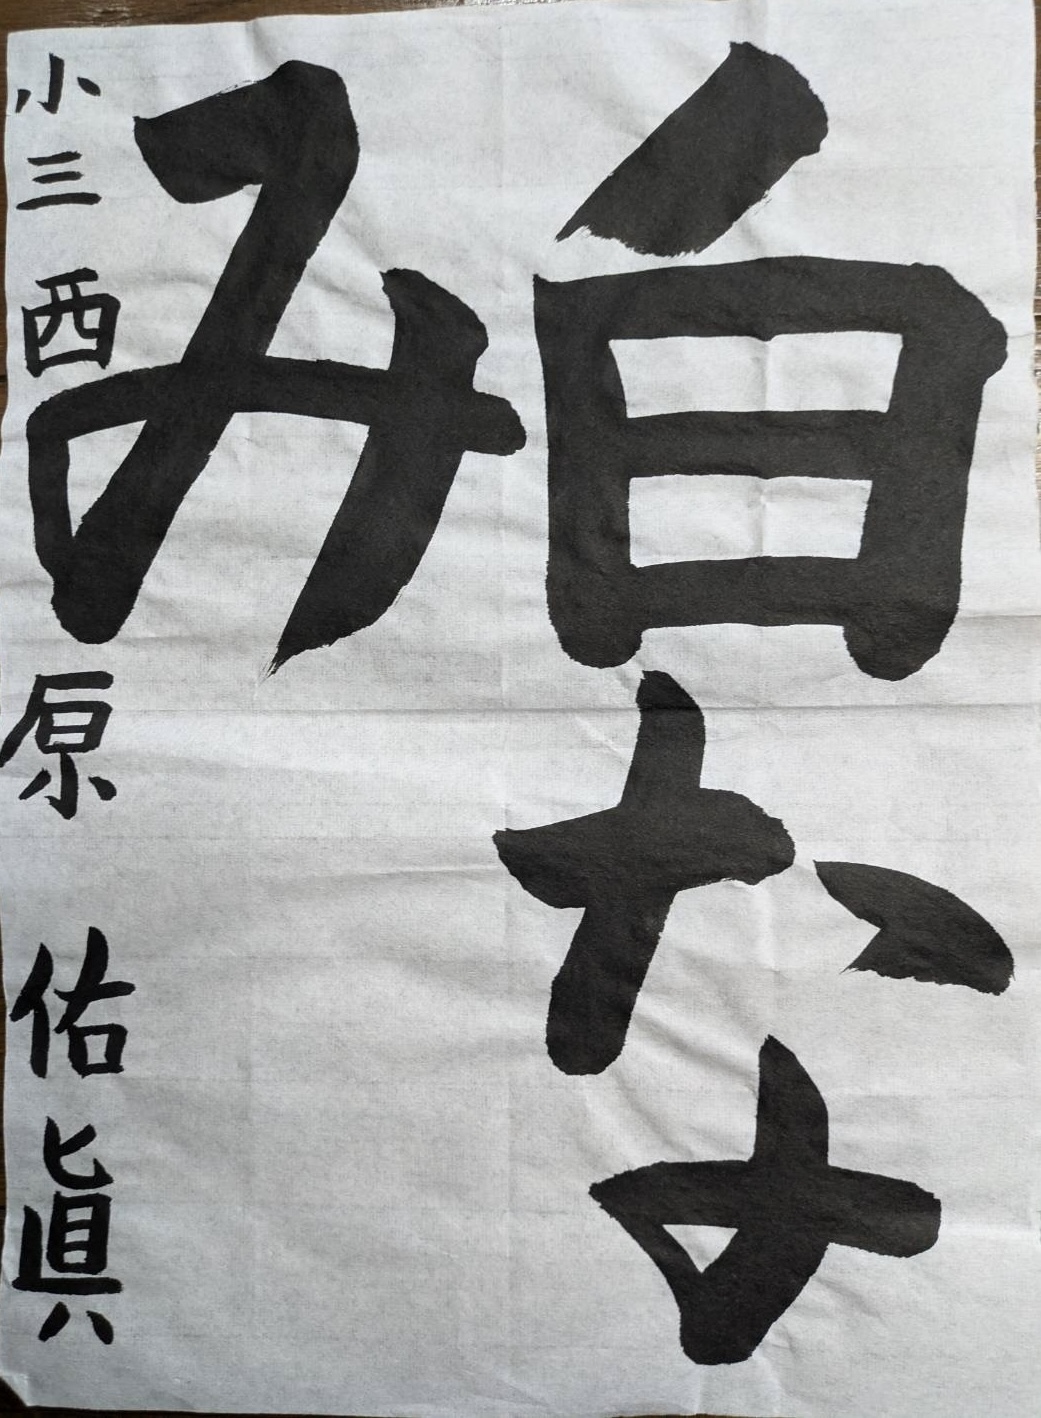 白な
み
小三 西原 佑眞